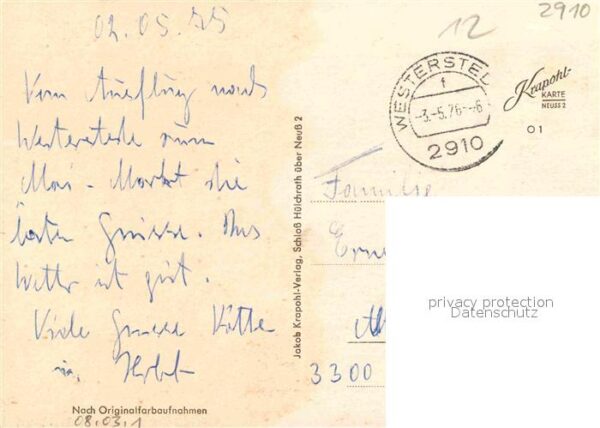 02.05.75
Vom Ausflug nach
Westerstede zum
Mai-Markt die
besten Grüsse. Das
Wetter ist gut.
Viele Grüsse Käthe
u. Herbert
Nach Originalfarbaufnahmen
08.03.1
Jakob Krapohl-Verlag, Schloß Hülchrath über Neuß 2
12
2910
WESTERSTED
f
-3.-5.76-6
2910
Krapohl-
KARTE
NEUSS 2
01
Familie
Erne
3300
privacy protection
Datenschutz